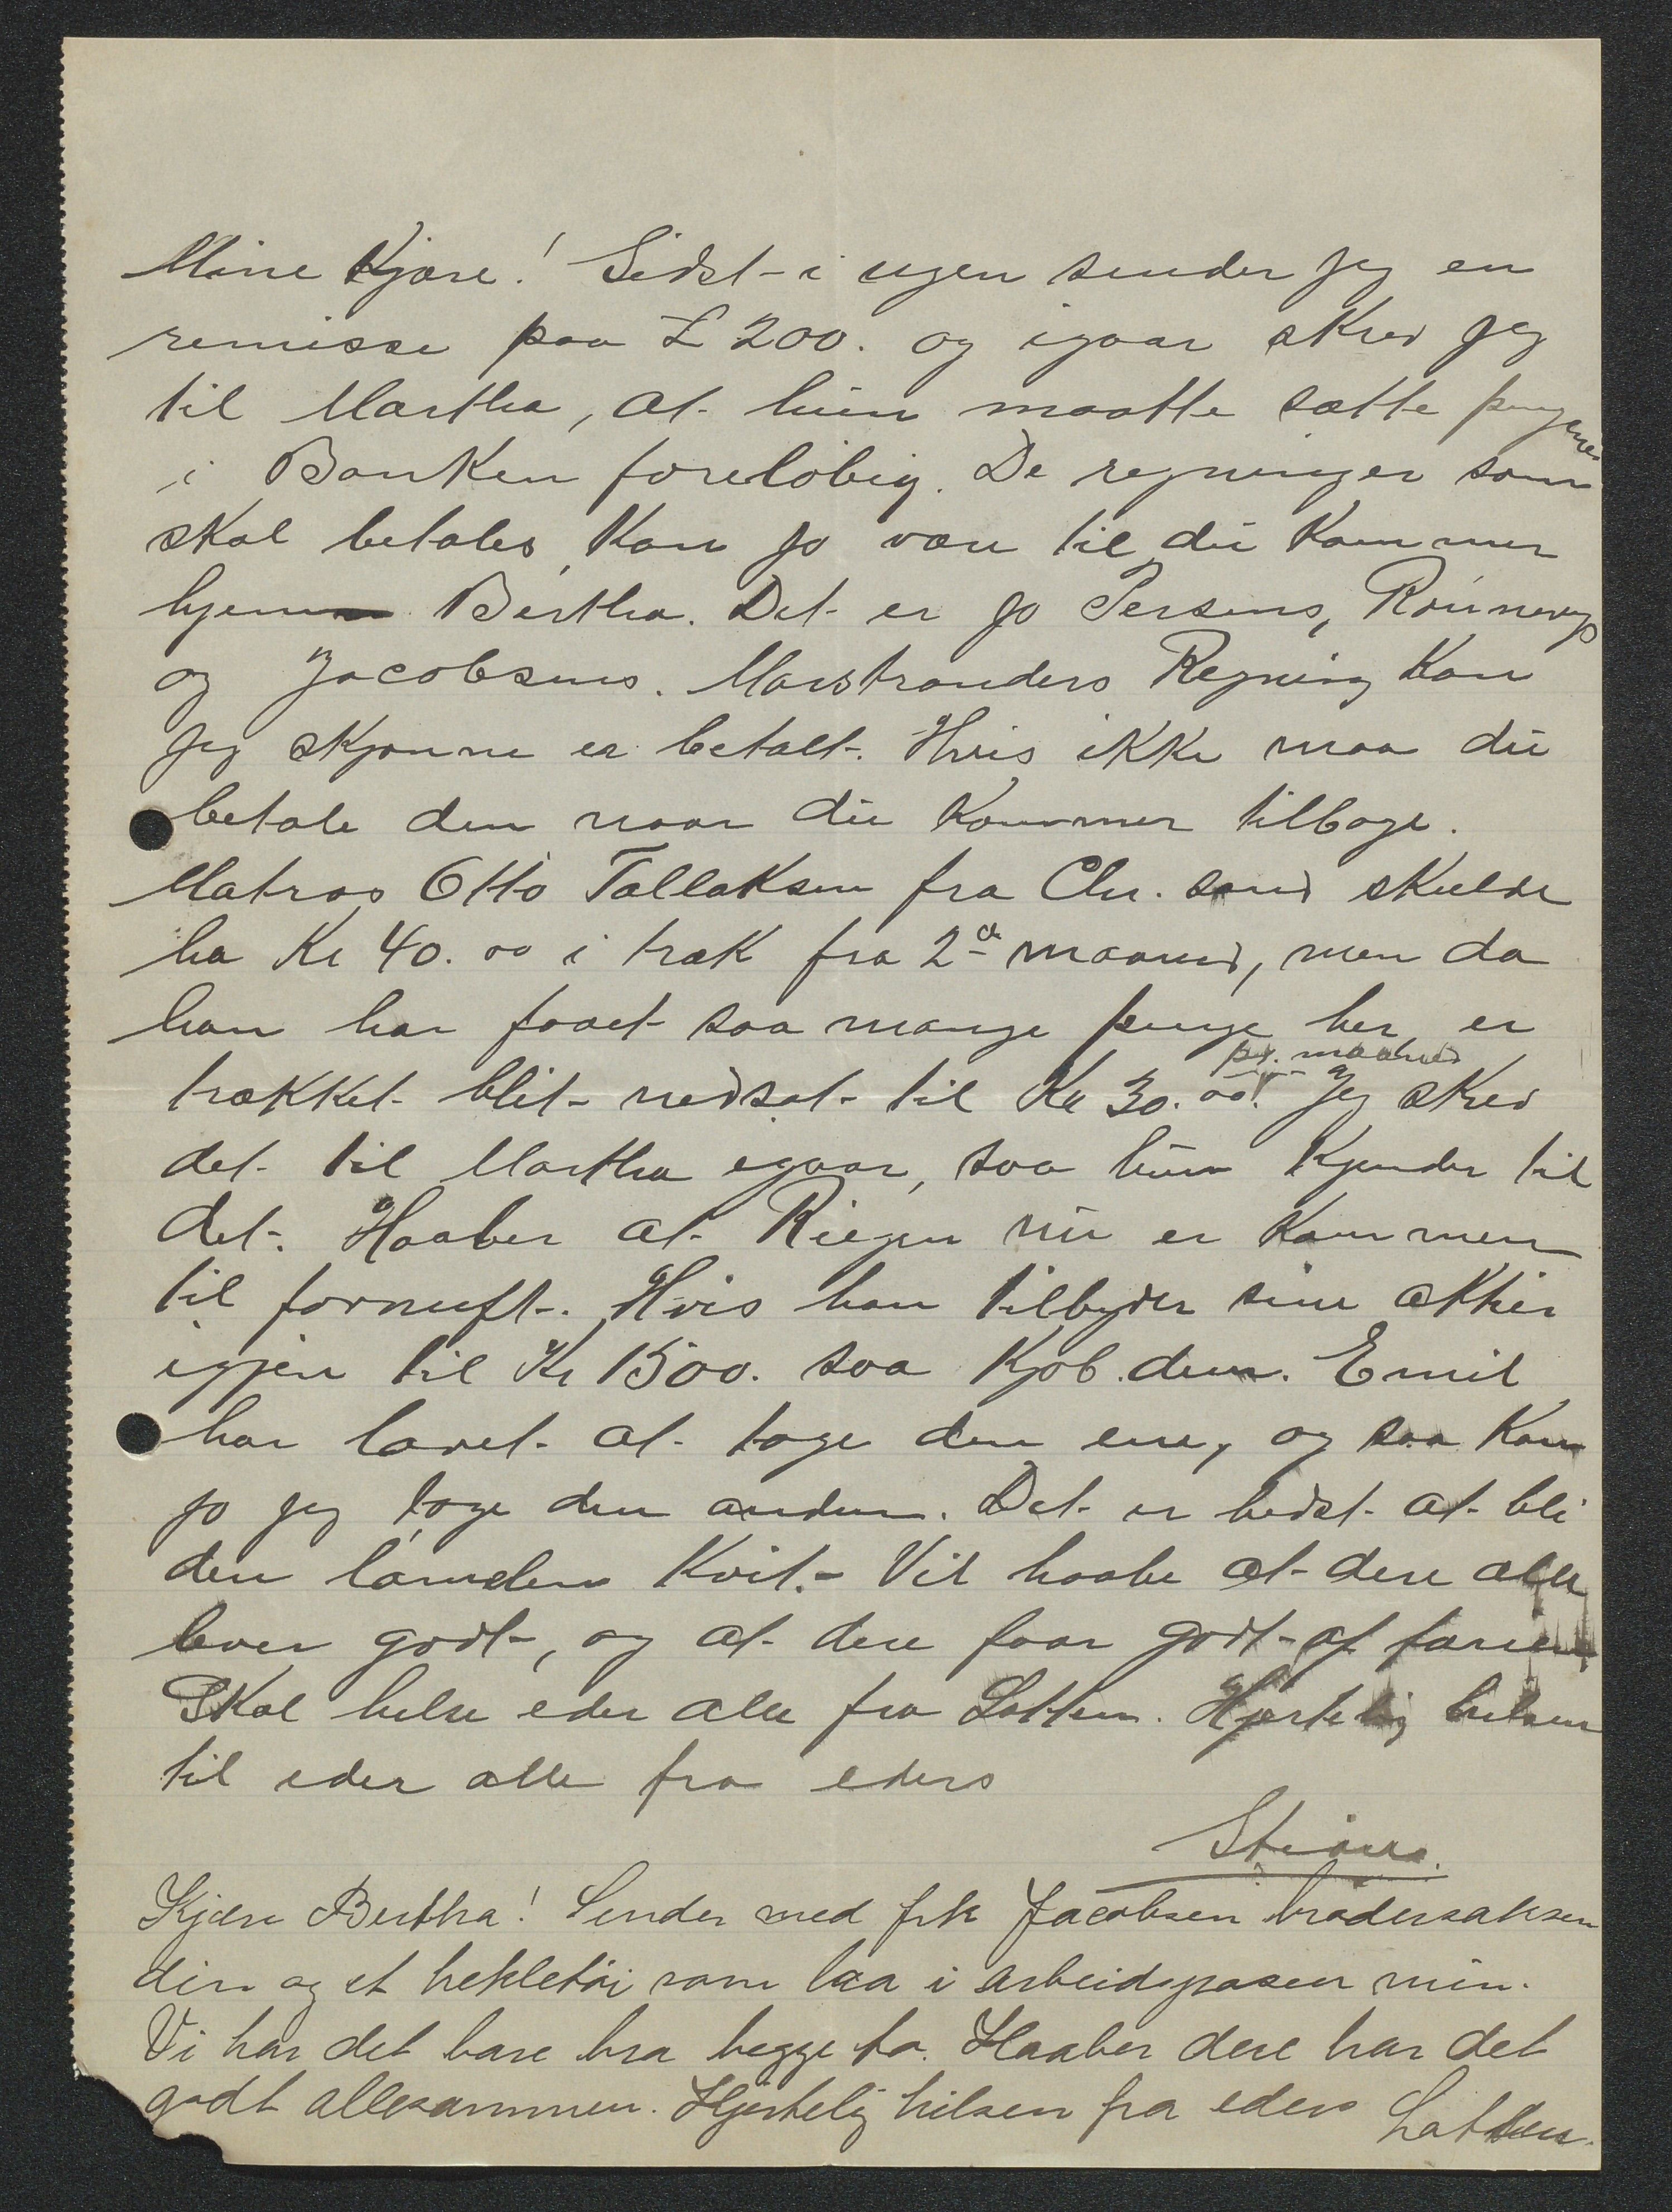 Mine Kjære! Sidst i ugen sender jeg en
remisse paa £ 200. og igaar skrev jeg
til Martha, at hun maatte sætte pengene
i Banken foreløbig. De regninger som
skal betales, kan jo være til du kommer
hjem Bertha. Det er jo Persens,
og Jacobsens. Marstranders Regning kan
jeg skjønne er betalt. Hvis ikke maa du
betale den naar du kommer tilbage.
Matros Otto Tallaksen fra Chr. sand skulde
ha Kr 40.00 i træk fra 2d maaned, men da
han har faaet saa mange penge her er
trækket blit nedsat til Kr 30.00 pr. maaned. Jeg skrev
det til Martha igaar, saa hun kjender til
det. Haaber at Riegen nu er kommen
til fornuft. Hvis han tilbyder sine aktier
igjen til Kr 1500. saa kjøb dem. Emil
har lovet at tage den ene, og saa kan
jo jeg tage den anden. Det er bedst at bli
den kvit. Vil haabe at dere alle
lever godt, og at dere faar godt af
Skal hilse eder alle fra Lotten. Hjertelig hilsen
til eder alle fra eders
Kjære Bertha! Sender med frk Jacobsen brodersaksen
din og et hekletøi som laa i arbeidsposen min.
Vi har det bare bra begge to. Haaber dere har det
godt allesammen. Hjertelig hilsen fra eders Lotten.